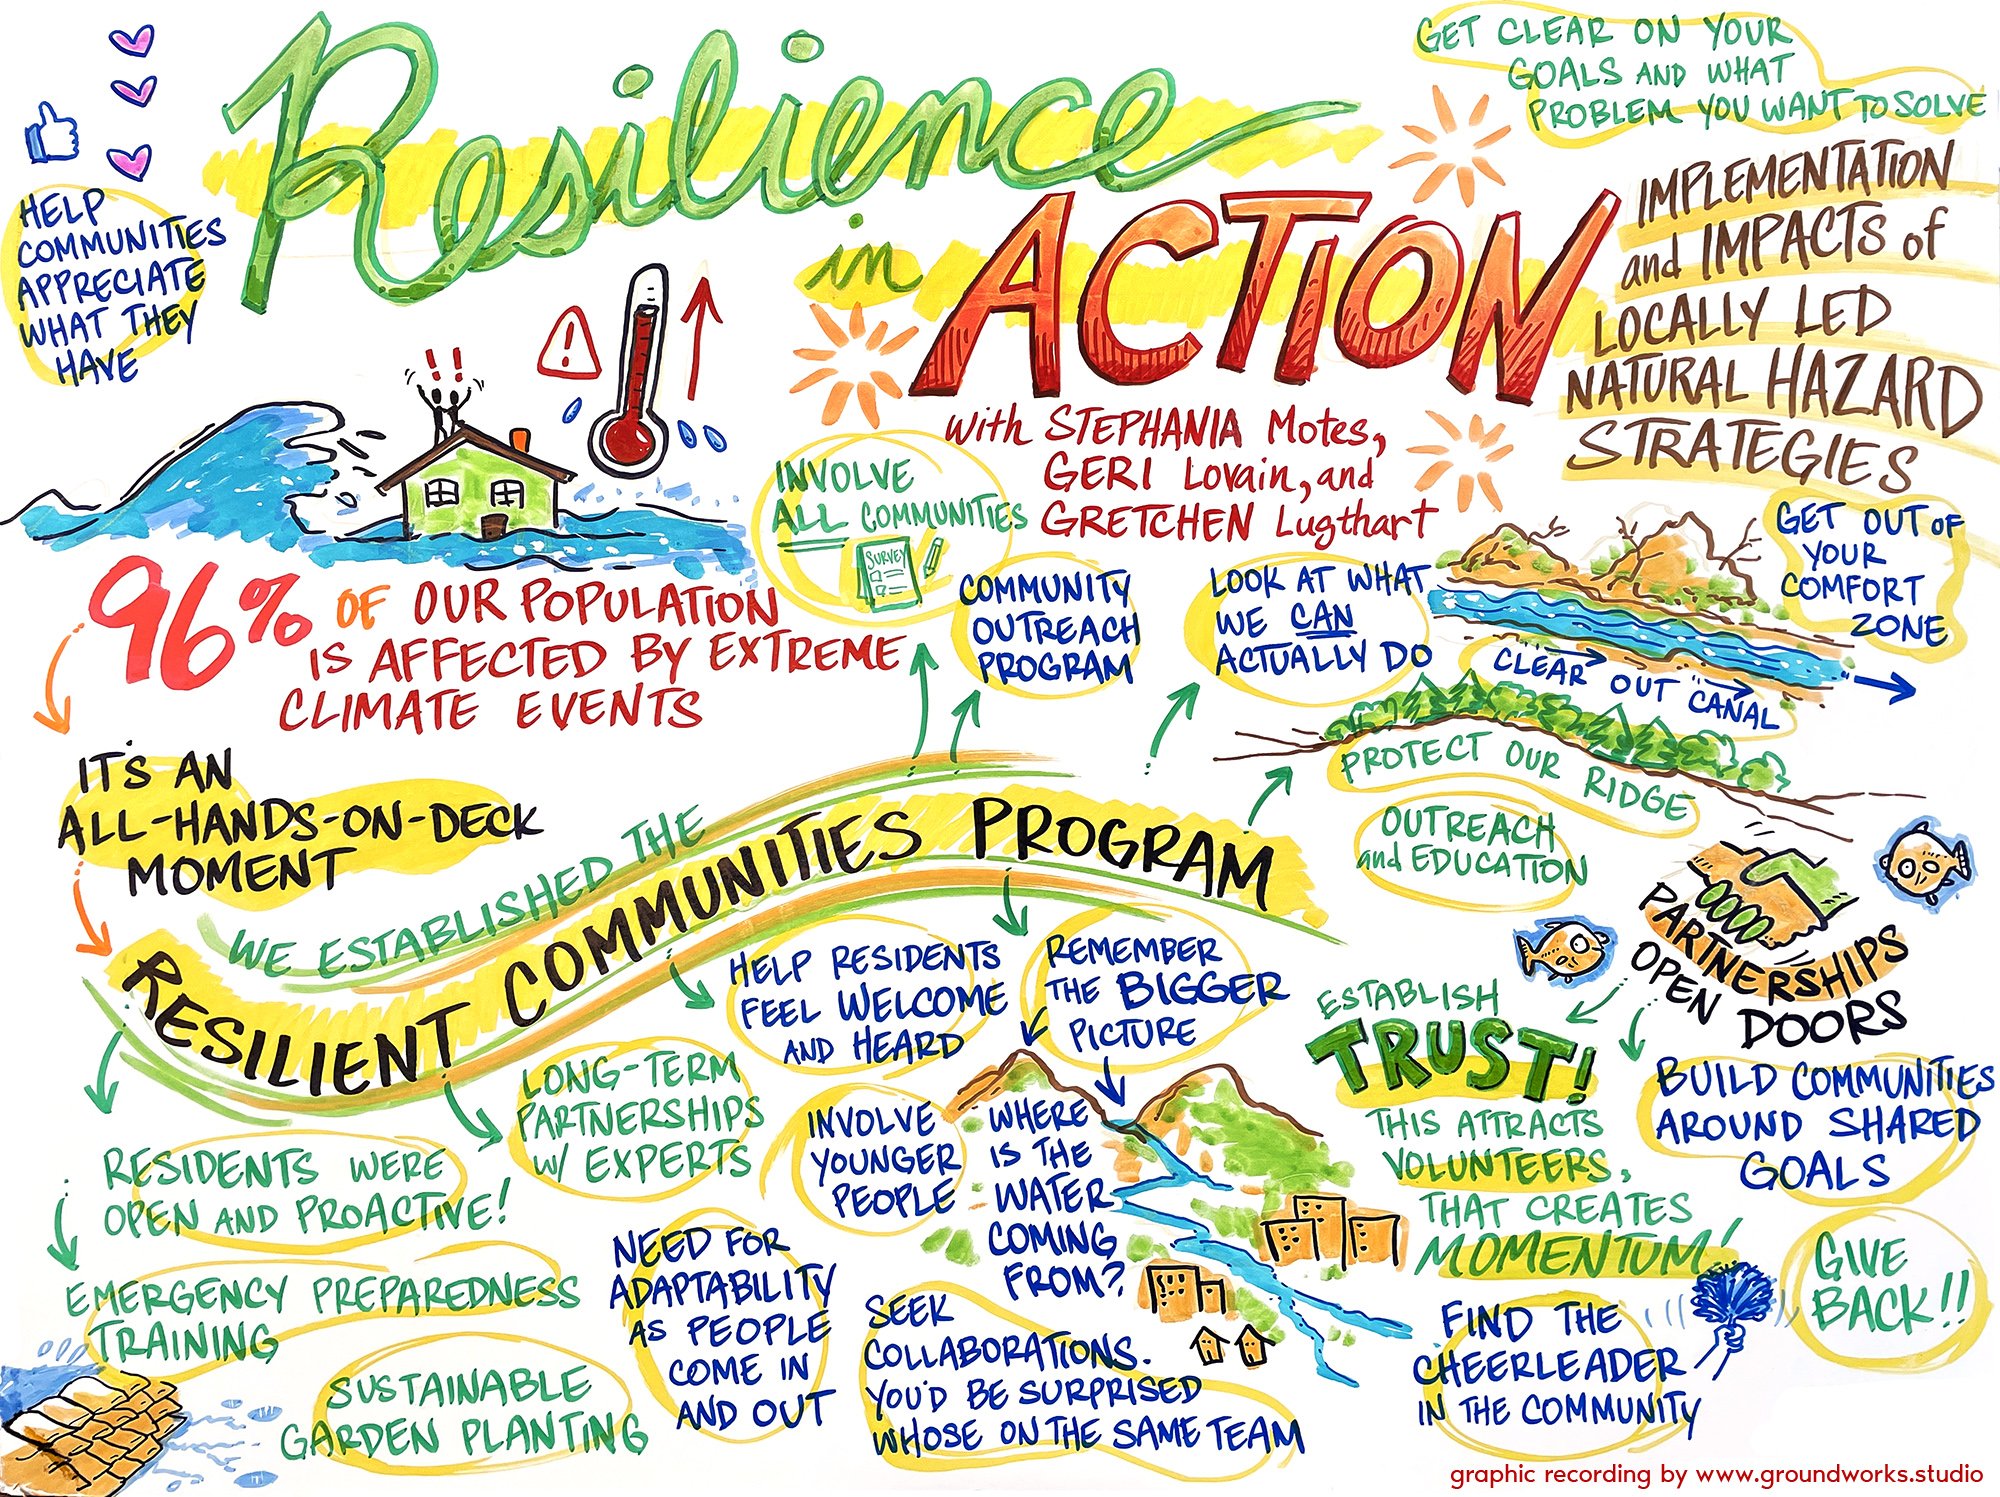 Resilience
in
ACTION
with STEPHANIA Motes,
GERI Lovain, and
GRETCHEN Lugthart
GET CLEAR ON YOUR
GOALS AND WHAT
PROBLEM YOU WANT TO SOLVE
IMPLEMENTATION
and IMPACTS of
LOCALLY LED
NATURAL HAZARD
STRATEGIES
HELP
COMMUNITIES
APPRECIATE
WHAT THEY
HAVE
!!
!
96% OF OUR POPULATION
IS AFFECTED BY EXTREME
CLIMATE EVENTS
IT'S AN
ALL-HANDS-ON-DECK
MOMENT
WE ESTABLISHED THE
RESILIENT COMMUNITIES PROGRAM
INVOLVE
ALL COMMUNITIES
SURVEY
COMMUNITY
OUTREACH
PROGRAM
LOOK AT WHAT
WE CAN
ACTUALLY DO
GET OUT OF
YOUR
COMFORT
ZONE
CLEAR OUT CANAL
PROTECT OUR RIDGE
OUTREACH
and EDUCATION
PARTNERSHIPS
OPEN DOORS
ESTABLISH
TRUST!
THIS ATTRACTS
VOLUNTEERS,
THAT CREATES
MOMENTUM!
BUILD COMMUNITIES
AROUND SHARED
GOALS
GIVE
BACK!!
FIND THE
CHEERLEADER
IN THE COMMUNITY
HELP RESIDENTS
FEEL WELCOME
AND HEARD
REMEMBER
THE BIGGER
PICTURE
WHERE
IS THE
WATER
COMING
FROM?
LONG-TERM
PARTNERSHIPS
W/ EXPERTS
INVOLVE
YOUNGER
PEOPLE
RESIDENTS WERE
OPEN AND PROACTIVE!
EMERGENCY PREPAREDNESS
TRAINING
SUSTAINABLE
GARDEN PLANTING
NEED FOR
ADAPTABILITY
AS PEOPLE
COME IN
AND OUT
SEEK
COLLABORATIONS.
YOU'D BE SURPRISED
WHOSE ON THE SAME TEAM
graphic recording by www.groundworks.studio